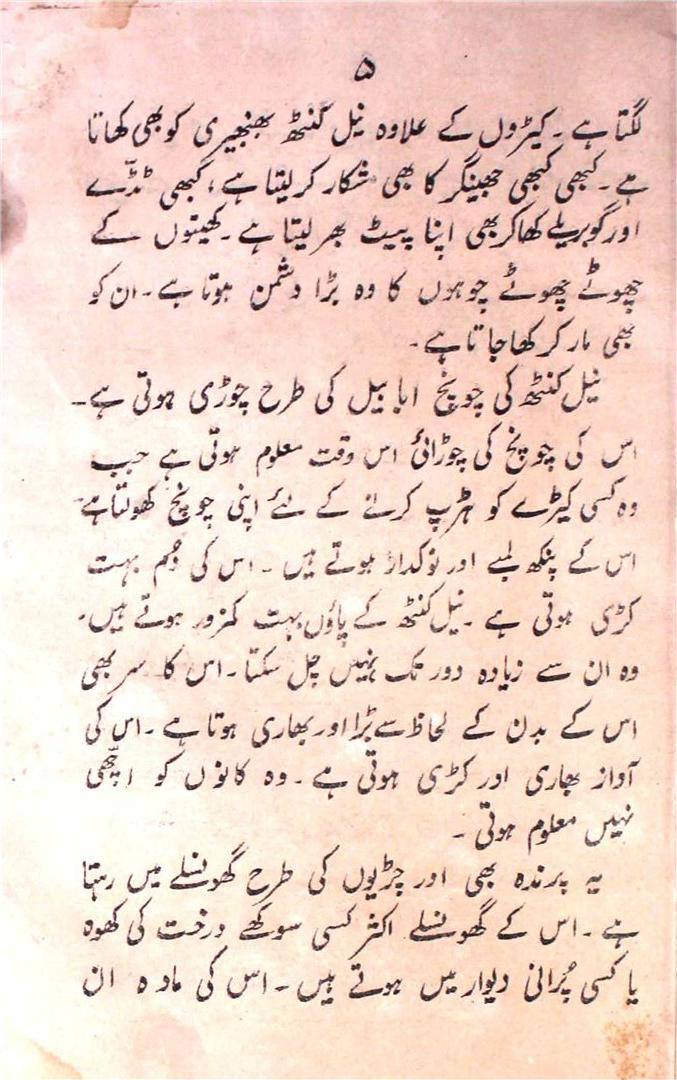 ۵
لگتا ہے۔ کیڑوں کے علاوہ نیل کنٹھ بھنبھیری کو بھی کھاتا
ہے۔ کبھی کبھی جھینگر کا بھی شکار کر لیتا ہے، کبھی ٹڈّے
اور گوبریلے کھا کر بھی اپنا پیٹ بھر لیتا ہے۔ کھیتوں کے
چھوٹے چھوٹے چوہوں کا وہ بڑا دشمن ہوتا ہے۔ ان کو
بھی مار کر کھا جاتا ہے۔
نیل کنٹھ کی چونچ ابابیل کی طرح چوڑی ہوتی ہے۔
اس کی چونچ کی چوڑائی اس وقت معلوم ہوتی ہے جب
وہ کسی کیڑے کو ہڑپ کرنے کے لئے اپنی چونچ کھولتا ہے۔
اس کے پنکھ لمبے اور نوکدار ہوتے ہیں۔ اس کی دُم بہت
کڑی ہوتی ہے۔ نیل کنٹھ کے پاؤں بہت کمزور ہوتے ہیں۔
وہ ان سے زیادہ دور تک نہیں چل سکتا۔ اس کا سر بھی
اس کے بدن کے لحاظ سے بڑا اور بھاری ہوتا ہے۔ اس کی
آواز بھاری اور کڑی ہوتی ہے۔ وہ کانوں کو اچھّی
نہیں معلوم ہوتی۔
یہ پرندہ بھی اور چڑیوں کی طرح گھونسلے میں رہتا
ہے۔ اس کے گھونسلے اکثر کسی سوکھے درخت کی کھوہ
یا کسی پُرانی دیوار میں ہوتے ہیں۔ اس کی مادہ ان